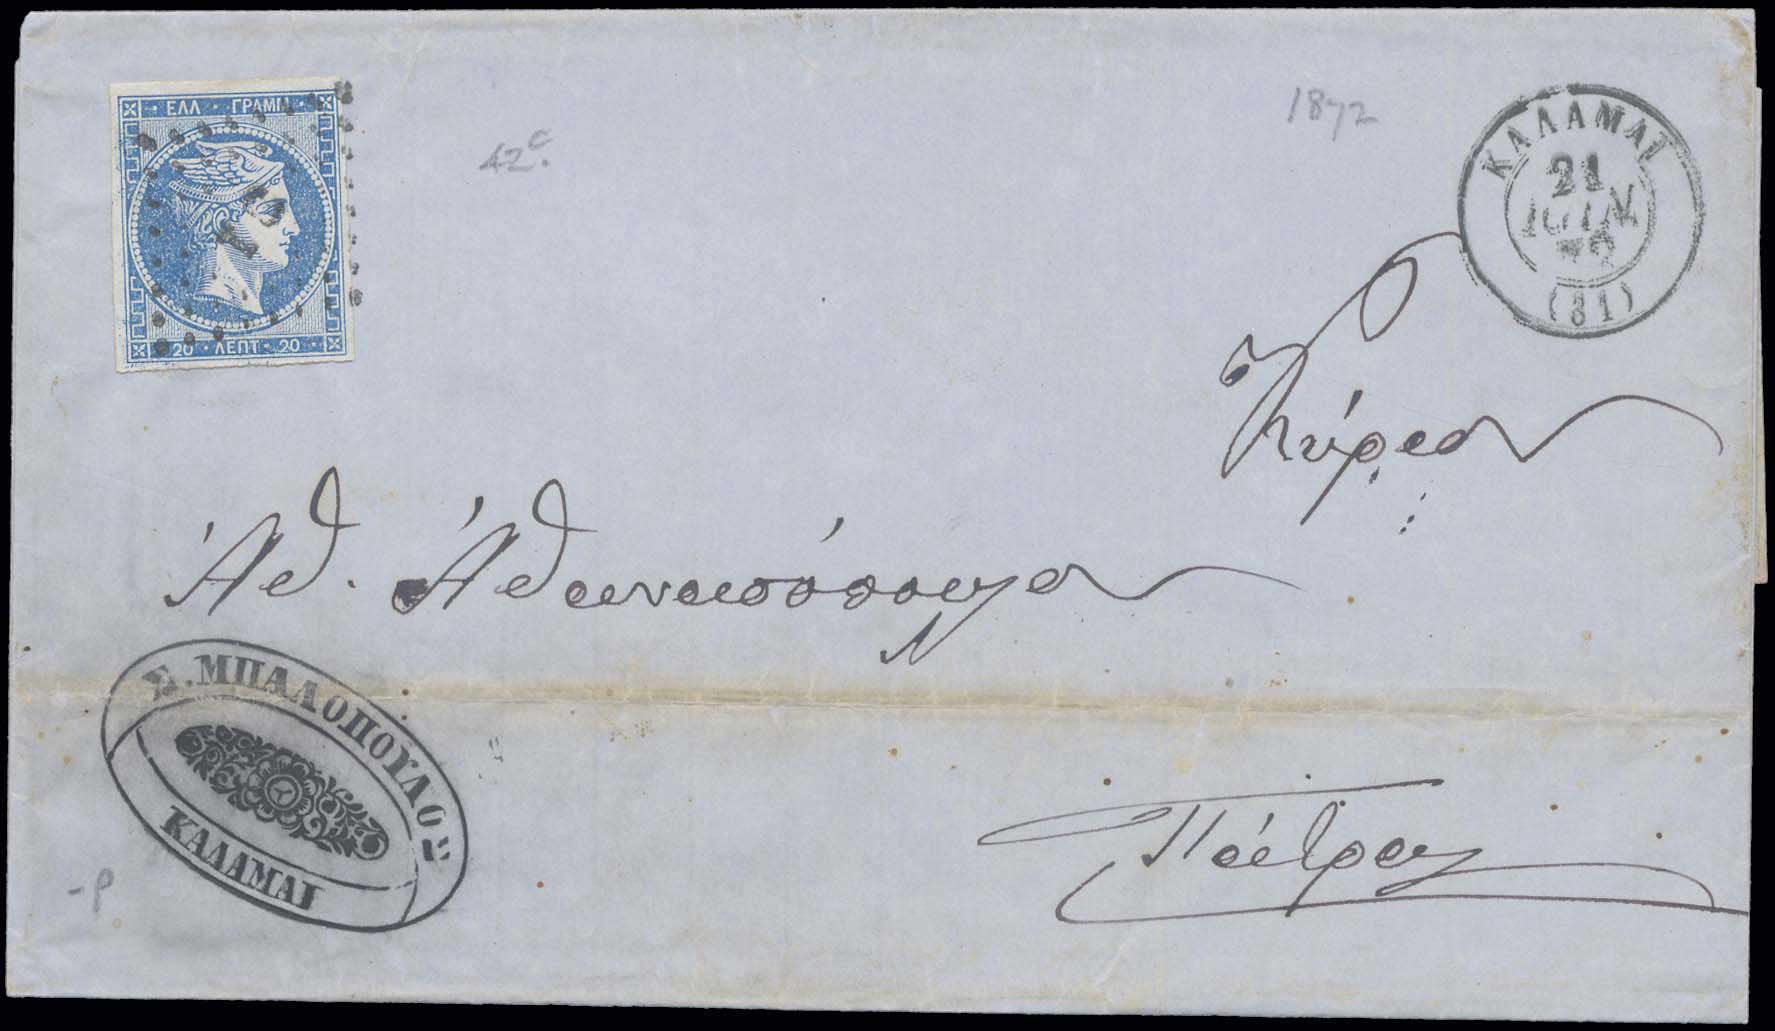 ΕΛΛ · ΓΡΑΜΜ
20 · ΛΕΠΤ · 20
42c.
1872
ΚΑΛΑΜΑΙ
21
ΙΟΥΝ
72
(31)
Κύριον
Ἀθ. Ἀθανασόπουλον
Σ. ΜΠΑΛΟΠΟΥΛΟΣ
ΚΑΛΑΜΑΙ
Πάτρας